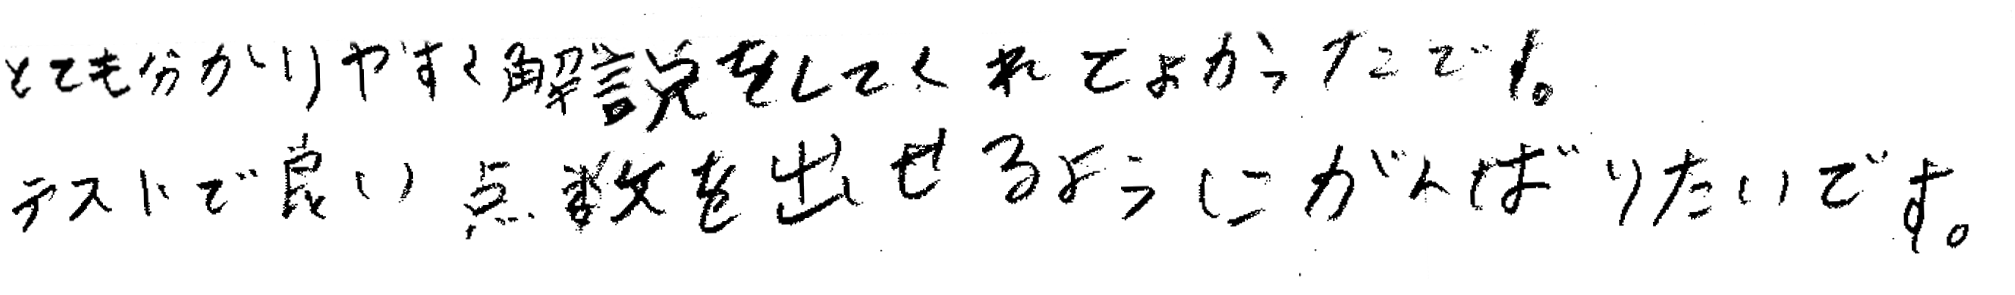 とても分かりやすく解説をしてくれてよかったです。
テストで良い点数を出せるようにがんばりたいです。